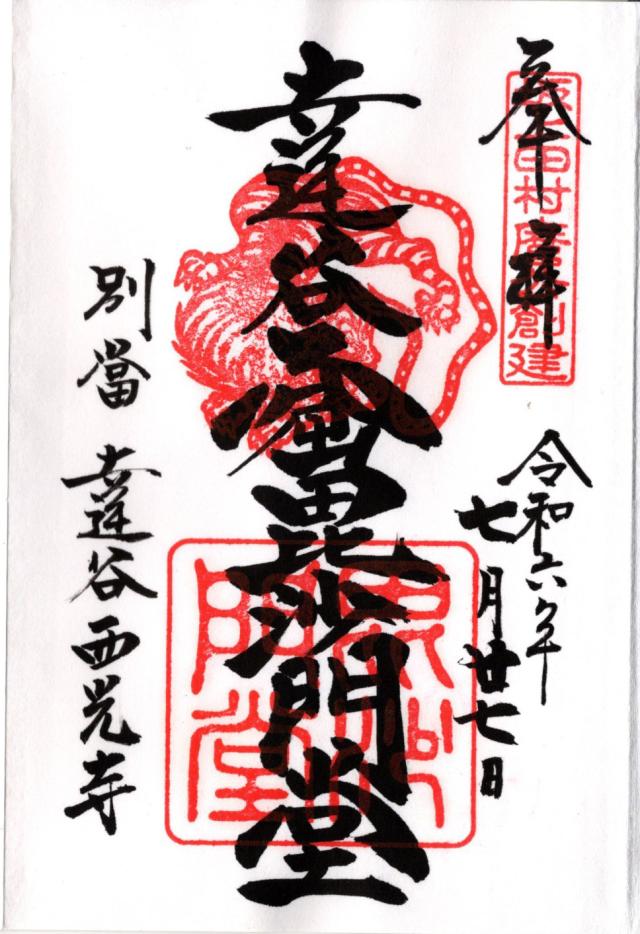 奉拝
坂上田村麿創建
令和六年
七月廿七日
達谷窟毘沙門堂
毘沙門堂
別當 達谷西光寺